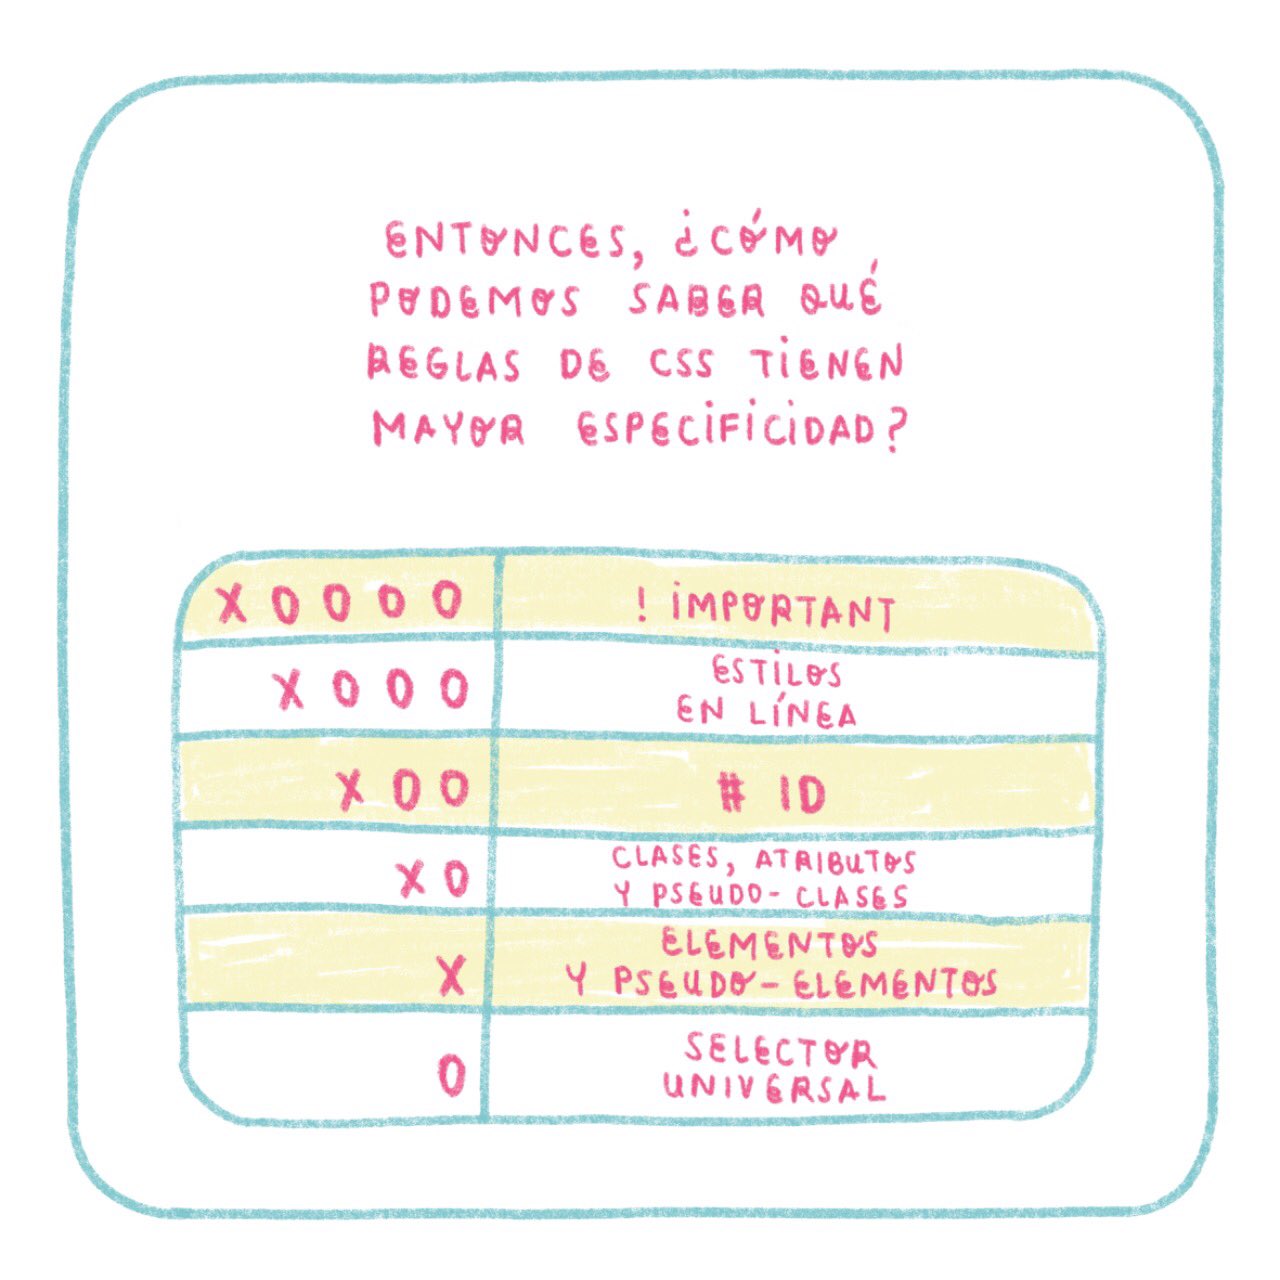 ENTONCES, ¿CÓMO
PODEMOS SABER QUÉ
REGLAS DE CSS TIENEN
MAYOR ESPECIFICIDAD?
X0000 ! IMPORTANT
X000 ESTILOS
EN LÍNEA
X00 # ID
X0 CLASES, ATRIBUTOS
Y PSEUDO-CLASES
X ELEMENTOS
Y PSEUDO-ELEMENTOS
0 SELECTOR
UNIVERSAL